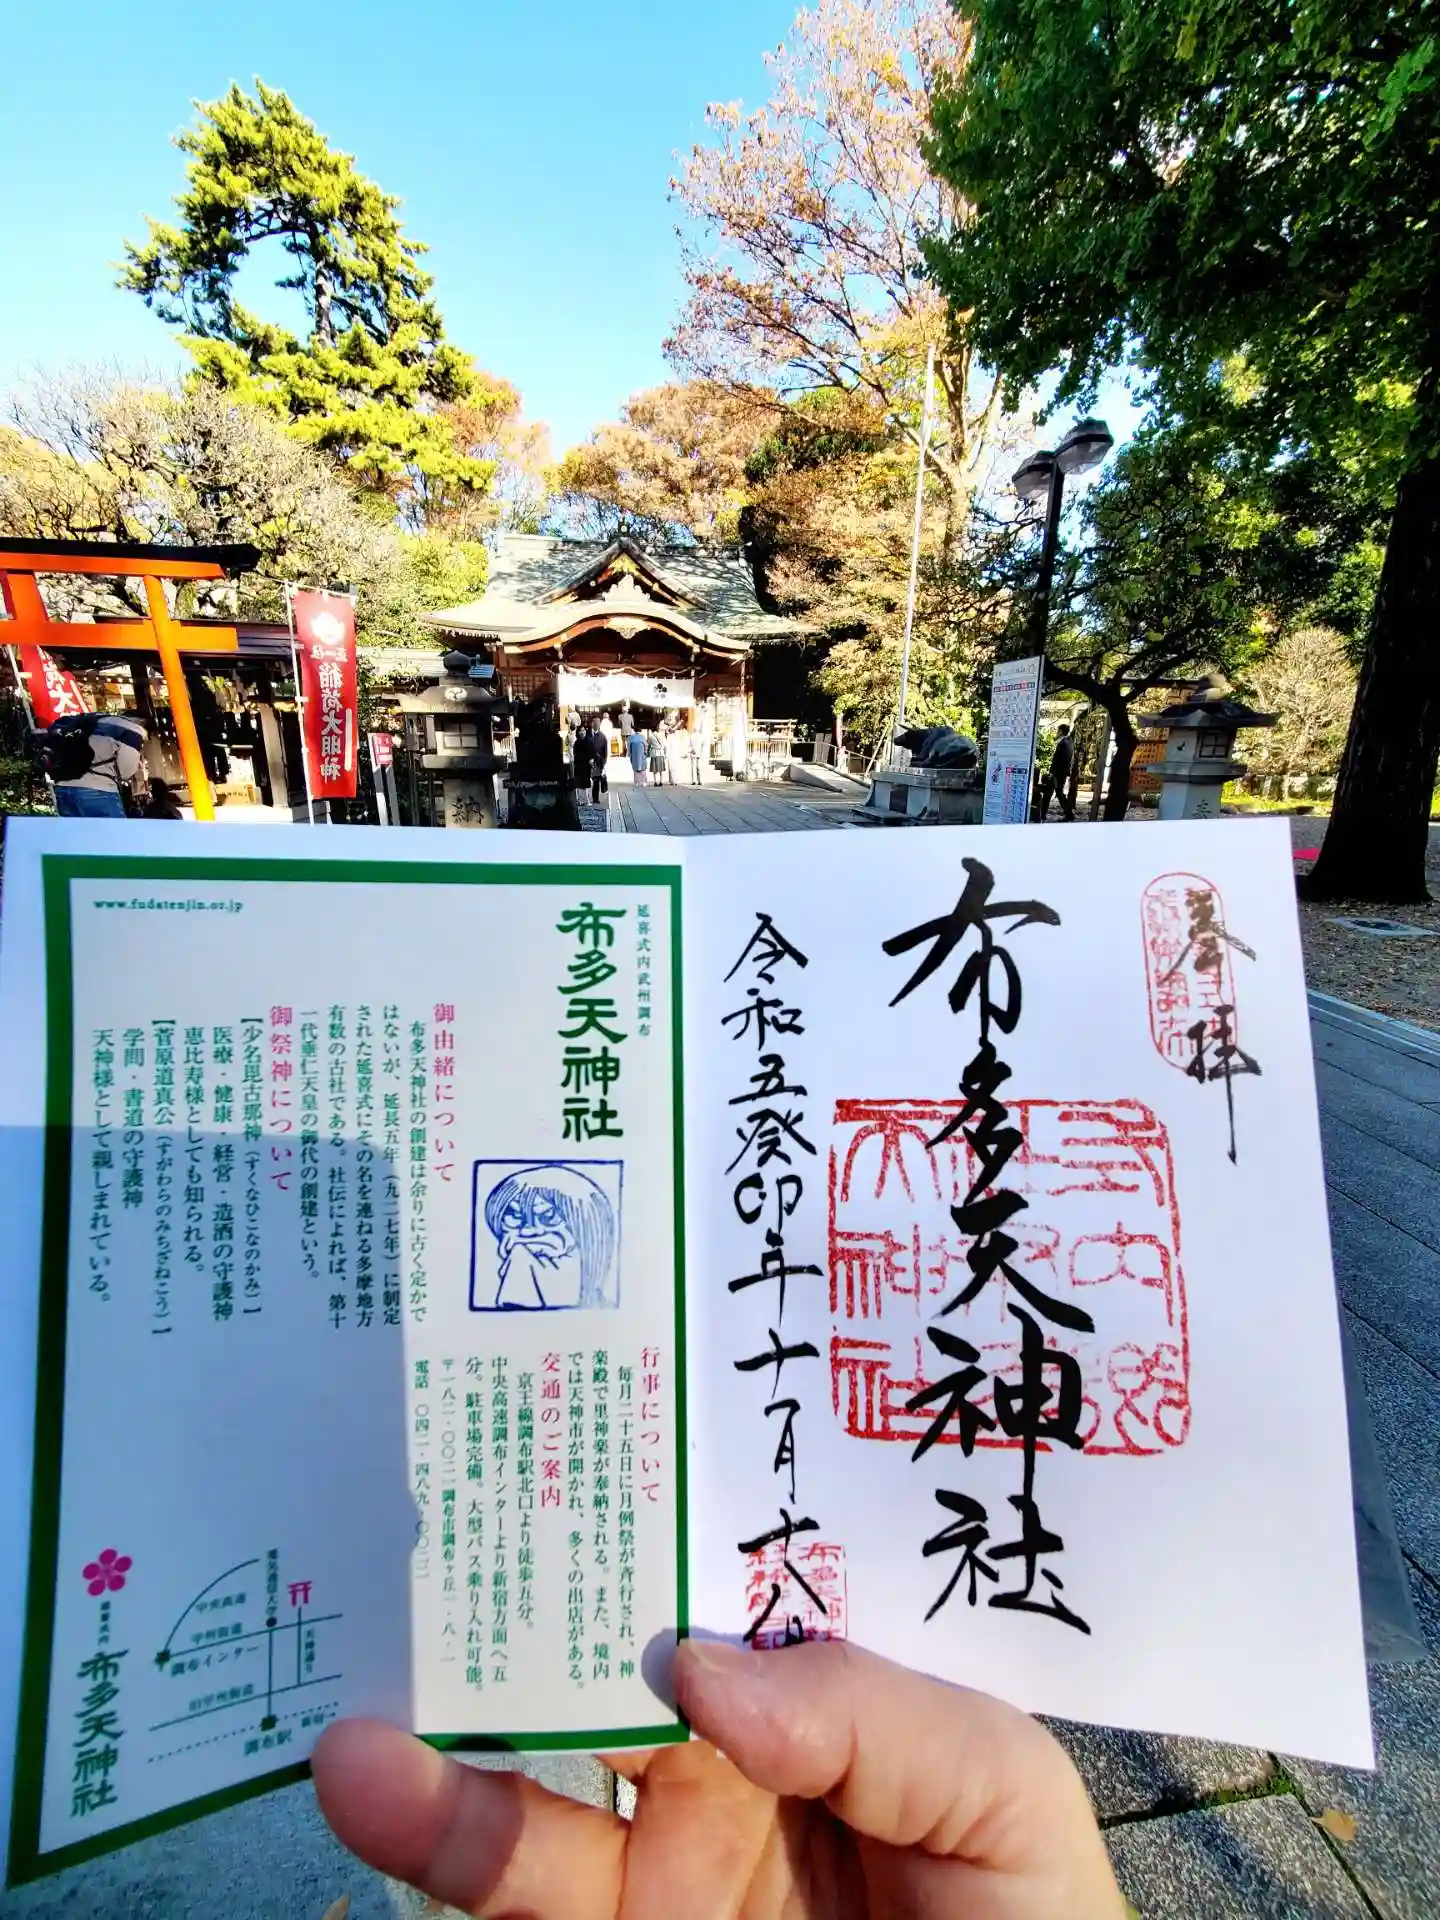 正一位
稲荷大明神
納
奉拝
布多天神社
令和五癸卯年十一月十八日
延喜式内武州調布
布多天神社
www.fudatenjin.or.jp
御由緒について
布多天神社の創建は余りに古く定かで
はないが、延長五年（九二七年）に制定
された延喜式にその名を連ねる多摩地方
有数の古社である。社伝によれば、第十
一代垂仁天皇の御代の創建という。
御祭神について
【少名毘古那神（すくなひこなのかみ）】
医療・健康・経営・造酒の守護神
恵比寿様としても知られる。
【菅原道真公（すがわらのみちざねこう）】
学問・書道の守護神
天神様として親しまれている。
行事について
毎月二十五日に月例祭が斉行され、神
楽殿で里神楽が奉納される。また、境内
では天神市が開かれ、多くの出店がある。
交通のご案内
京王線調布駅北口より徒歩五分。
中央高速調布インターより新宿方面へ五
分。駐車場完備。大型バス乗り入れ可能。
〒一八二-〇〇二一調布市調布ヶ丘一-八-一
電話　〇四二-四八九-〇〇二二
電気通信大学
中央高速
甲州街道
調布インター
旧甲州街道
天神通り
調布駅
新宿→
布多天神社